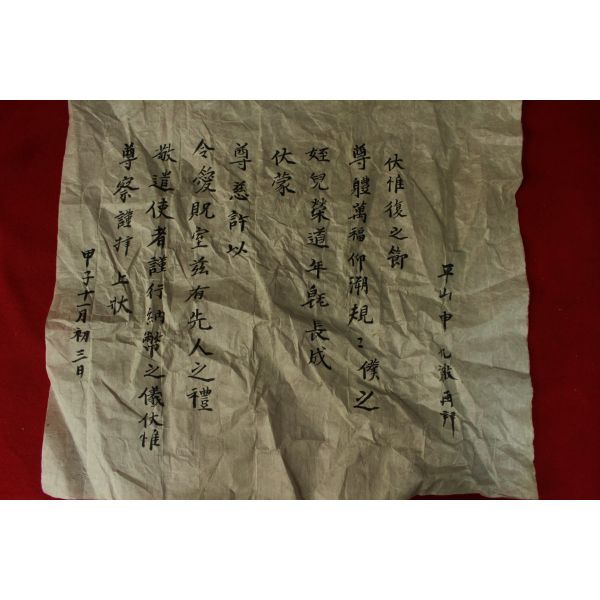 平山申 再拜
伏惟復之節
尊體萬福仰溯規〻僕之
姪兒榮道年旣長成
伏蒙
尊慈許以
令愛貺室玆有先人之禮
敬遣使者謹行納幣之儀伏惟
尊察謹拜上狀
甲子十一月初三日